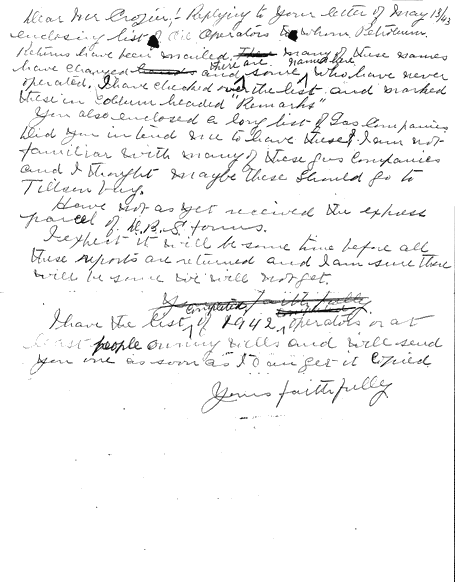 Dear Mr Crozier, - Replying to your letter of May 13/43
enclosing list of Oil Operators to whom Petroleum
Returns have been mailed many of these names
have changed and there are some names here who have never
operated. I have checked over the list and marked
these in Column headed "Remarks"
You also enclosed a long list of Gas Companies
Did you intend me to have these? I am not
familiar with many of these gas companies
and I thought maybe these should go to
Tillsonburg.
Have not as yet received the express
parcel of D.B.S. forms.
I expect it will be some time before all
these reports are returned and I am sure there
will be some we will not get.
Yours faithfully
I have the list completed of 1942 operators or at
least people owning wells and will send
you one as soon as I can get it copied
Yours faithfully